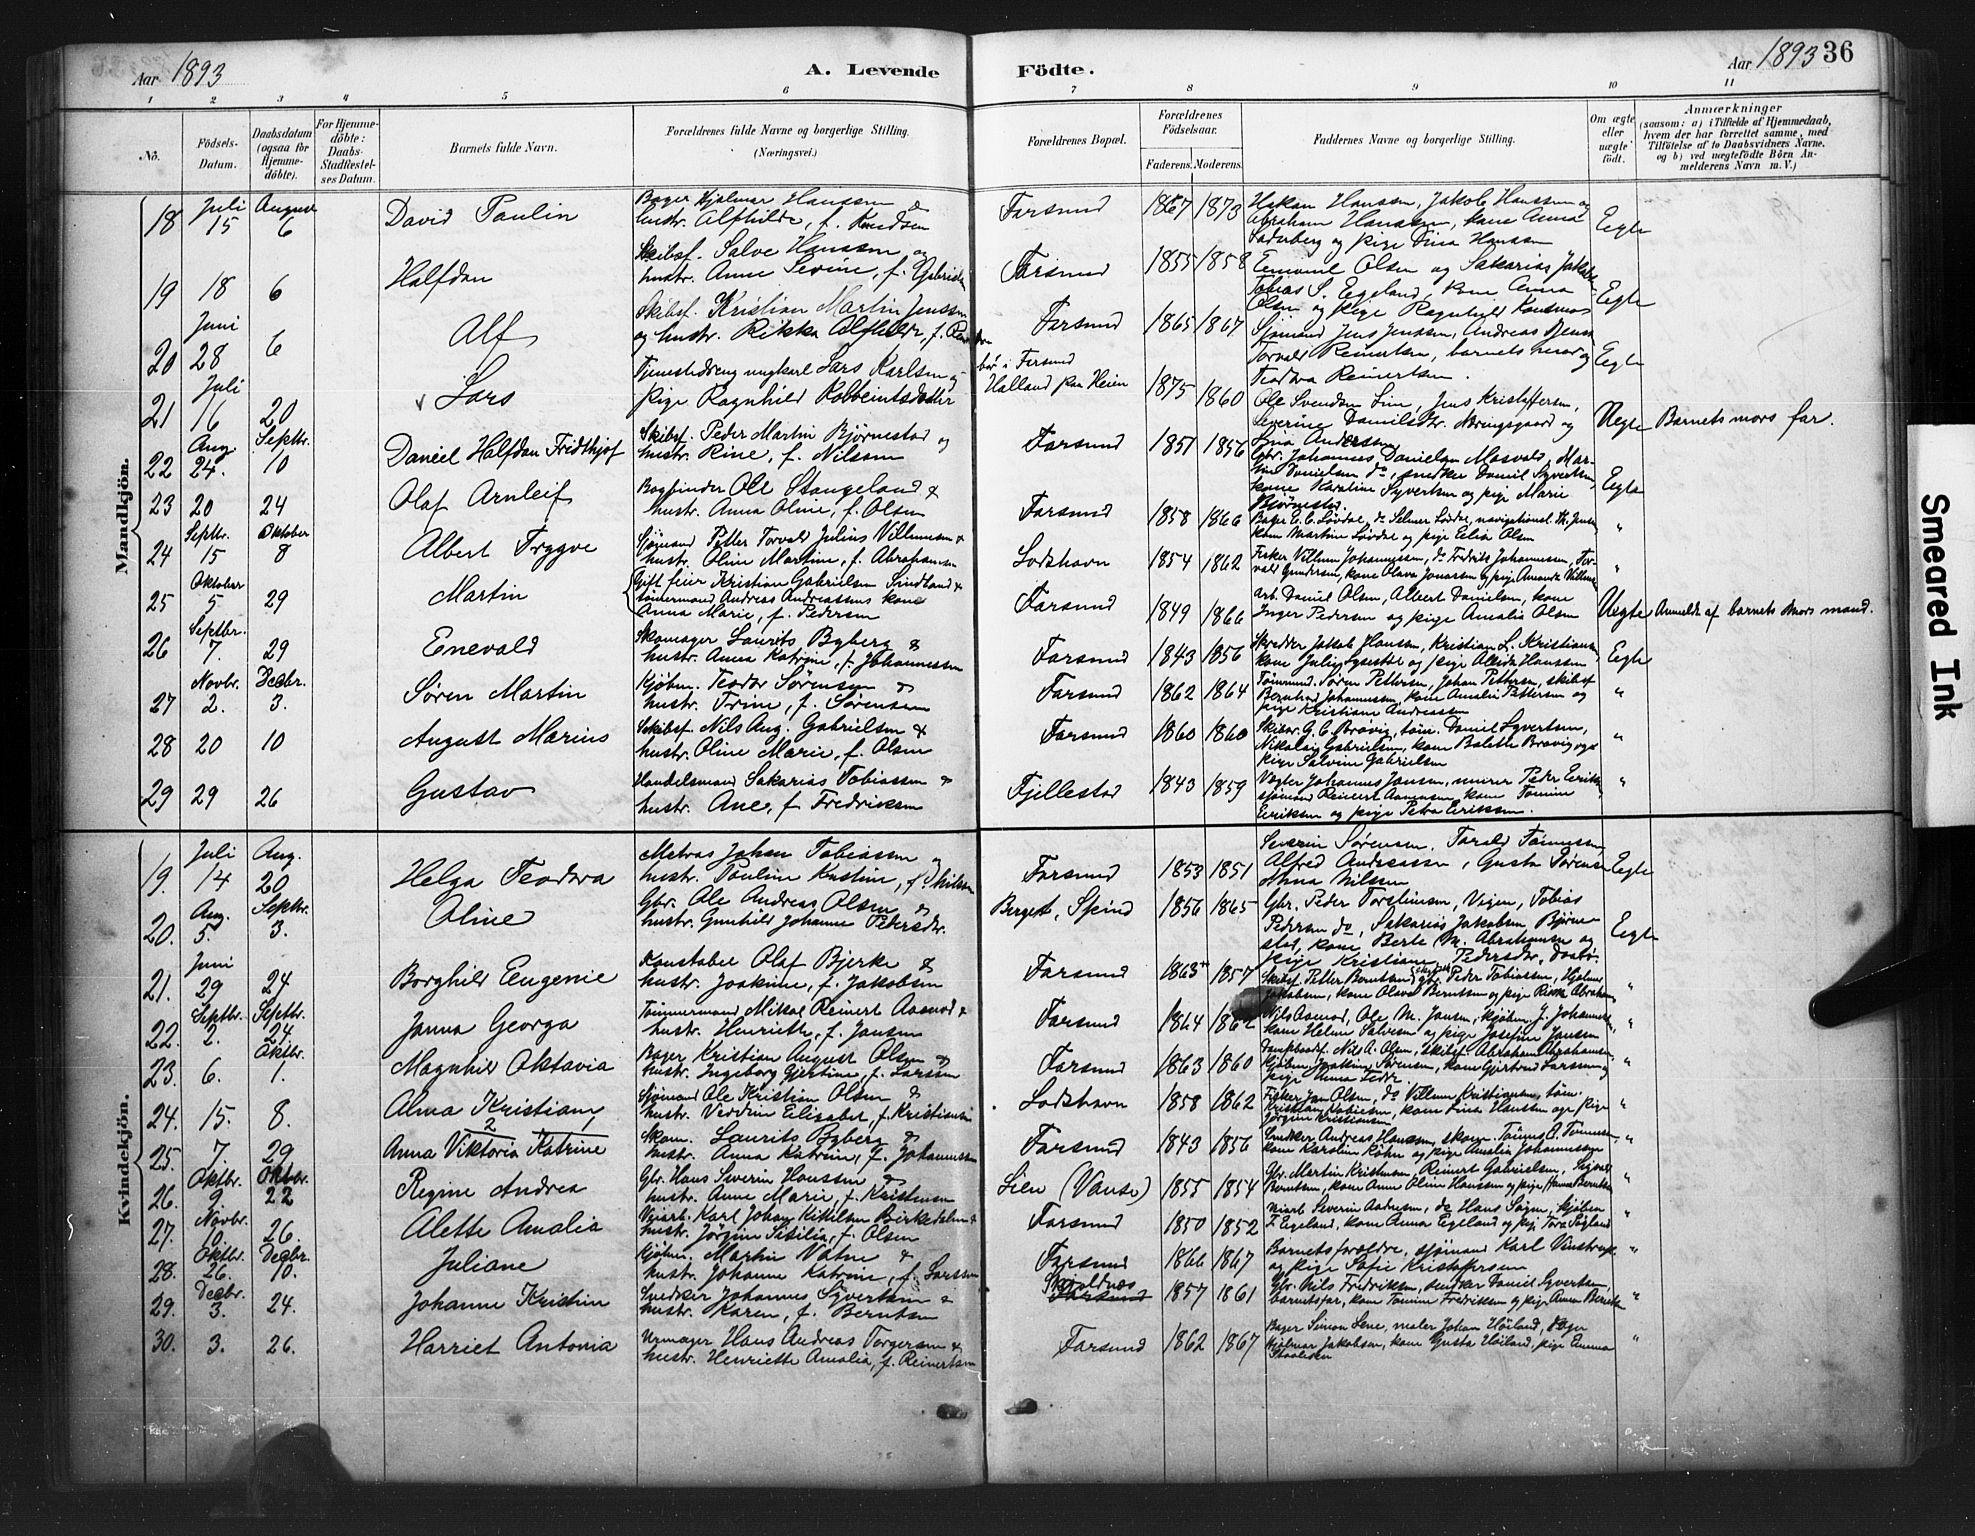 Aar 1893
A. Levende
Födte.
Aar 1893 36
1 2 3 4 5 6 7 8 9 10 11
No.
Födsels-Datum.
Daabsdatum (ogsaa for Hjemmedöbte).
For Hjemmedöbte: Daabs-Stadfestelses Datum.
Barnets fulde Navn.
Forældrenes fulde Navne og borgerlige Stilling.
(Næringsvei.)
Forældrenes Bopæl.
Forældrenes Födselsaar.
Faderens. Moderens.
Faddernes Navne og borgerlige Stilling.
Om ægte eller uægte födt.
Anmærkninger
(saasom: a) i Tilfælde af Hjemmedaab,
hvem der har forrettet samme, med
Tilföielse af to Daabsvidners Navne,
og b) ved uægtefödte Börn An-
melderens Navn m. V.)
Mandkjön.
18 Juli 15 August 6 David Paulin
Bager Hjalmar Hanssen &
hustr. Alfhilde, f. Knudsen
Farsund 1867 1873
Hakan Hanssen, Jakob Hanssen og
Abraham Hanssen, kone Anna
Søderberg og pige Dina Hanssen
Egte
19 18 6 Halfdan
Skibsf. Salve Hanssen og
hustr. Anne Sevine, f. Gabrielsen
Farsund 1855 1858
Emanuel Olsen og Sakarias Jakobs
Tobias S. Egeland, kone Anna
Olsen og pige Ragnhild
Egte
20 Juni 28 6 Alf
Skibsf. Kristian Martin Jenssen
og hustr. Rikka Alfhilde, f.
Farsund 1865 1867
Sjømand Jens Jenssen, Andreas
Torvald Reinertsen, barnets mor og
Teodora Reinertsen.
Egte
21 Juli 16 20 Lars
Tjenestedreng ungkarl Lars Karlsen og
pige Ragnhild
bor i Farsund
Halland paa Heien
1875 1860
Ole Svendsen Lien, Jens Kristoffersen,
Severine Danielsdtr. og
Anderssen
Uegte Barnets mors far.
22 Aug. 24. Septbr. 10 Daniel Halfdan Fridthjof
Skibsf. Peder Martin Bjørnestad og
hustr. Rine, f. Nilssen
Farsund 1851 1856
Gbr. Johannes Danielsen Mosvold, Mar-
tin Danielsen do, snedker Daniel Syvertsen,
kone Karoline Syvertsen og pige Marie
Bjørnestad.
Egte
23 20 24 Olaf Arnleif
Bogbinder Ole Stangeland &
hustr. Anna Oline, f. Olsen
Farsund 1858 1866
Bager E. C. Løvdal, do Selmer Løvdal, navigationsl. Th. Jensen
kone Martine Løvdal og pige Elia Olsen
"
24 Septbr. 15 Oktober 8 Albert Tryggve
Sjømand Petter Torvald Julius Villumsen &
hustr. Oline Martine, f. Abrahamsen
Lodshavn 1854 1862
Fisker Villum Johannessen, do Fredrik Johannessen, Tor-
vald Gundersen, kone Olava Jonassen og pige Amanda Villums
"
25 Oktober 5 29 Martin
Gift feier Kristian Gabrielsen Sindland &
tømmermand Andreas Andreassens kone
Anna Marie, f. Pedersen
Farsund 1849 1866
arb. Daniel Olsen, Albert Danielsen, kone
Inger Pedersen og pige Amalia Olsen
Uegte Anmeldt af barnets mors mand.
26 Septbr. 7. 29 Enevald
Skomager Laurits Byberg &
hustr. Anna Katrine, f. Johannessen
Farsund 1843 1856
Skredder Jakob Hanssen, Kristian L. Kristiansen,
kone Julie og pige Alida Hanssen
Egte
27 Novbr. 2. Decbr. 3. Søren Martin
Kjøbm. Teodor Sørensen &
hustr. Trine, f. Sørensen
Farsund 1862 1864
Tømmerm. Søren Pettersen, Johan Pettersen, skibsf.
Bernhard Johannessen, kone Amalia Pettersen og
pige Kristiane Andreassen
"
28 20 10 August Marius
Skibsf. Nils Aug. Gabrielsen &
hustr. Oline Marie, f. Olsen
Farsund 1860 1860
Skibsr. G. C. Brøvig, tøm. Daniel Syvertsen,
Nikolai Gabrielsen, kone Balette Brøvig og
pige Salvine Gabrielsen
"
29 29 26 Gustav
Handelsmand Sakarias Tobiassen &
hustr. Ane, f. Fredriksen
Fjellestad 1843 1859
Vægter Johannes Jansen, murer Peder Eriks
sjømand Reinert Aanensen, kone Tomine
Eriksen og pige Petra Eriksen.
"
Kvindekjön.
19. Juli 14 Aug. 20 Helga Teodora
Matros Johan Tobiassen og
hustr. Pauline Kristine, f. Nilssen
Farsund 1853 1851
Severin Sørensen, Torald Tønnessen,
Alfred Anderssen, Gusta Sørensen
Anna Nilssen
Egte
20. Aug. 5. Septbr. 3. Oline
Gbr. Ole Andreas Olsen &
hustr. Gunhild Johanne Pedersdtr.
Berget, Spind 1856 1865
Gbr. Peder Torstensen, Vigen, Tobias
Pedersen do, Sakarias Jakobsen Bjørne-
stad, kone Berte M. Abrahamsen og
pige Kristiane Pedersdtr.
Egte
21. Juni 29 24 Borghild Eugenie
Konstabel Olaf Bjerke &
hustr. Joakime, f. Jakobsen
Farsund 1863 1857
Skibsf. Petter Berntsen, gbr. Peder Tobiassen, Hjalmar
Jakobsen, kone Olava Berntsen og pige Rikke Abraham
"
22. Septbr. 2. Septbr. 24 Janna Georga
Tømmermand Mikal Reinert Aamod &
hustr. Henriette, f. Jansen
Farsund 1864 1862
Nils Aamod, Ole M. Jansen, kjøbm. J. Johannes
kone Helene Salvesen og pige Josefine Jansen
"
23. 6. Oktbr. 1. Magnhild Oktavia
Bager Kristian August Olsen &
hustr. Ingeborg Gjertine, f. Larssen
Farsund 1863 1860
Dampbaadsf. Nils A. Olsen, skibsf. Abraham Abrahamsen,
kjøbm. Joakim Sørensen, kone Gjertrud Larssen og
pige Anna
"
24. 15. 8. Alma Kristiany
Sjømand Ole Kristian Olsen &
hustr. Verdine Elisabet, f. Kristiansen
Lodshavn 1858 1862
Fisker Jan Olsen, do Villum Kristiansen, tøm.
Kristian Tobiesen, kone Lina Hanssen og pige
Jørgine Kristiansen
"
2
25. 7. 29 Anna Viktoria Katrine
Skom. Laurits Byberg &
hustr. Anna Katrine, f. Johannessen
Farsund 1843 1856
Snedker Andreas Hanssen, skom. Tønnes A. Tønnessen,
kone Karoline Røhn og pige Amalia Johannessen
"
26. Oktbr. 9 Oktbr. 22 Regine Andrea
Gbr. Hans Severin Hanssen &
hustr. Anne Marie, f. Kristensen
Lien (Vanse) 1855 1854
Gbr. Martin Kristensen, Reinert Gabrielsen, Sigvald
Berntsen, kone Anne Oline Hanssen og pige Hanna Berntsen
"
27. Novbr. 10 26. Alette Amalia
Veiarb. Karl Johan Kikilsen Birkedalen &
hustr. Jørgine Sisilia, f. Olsen
Farsund 1850 1852
Veiarb. Severin Aadnesen, do Hans Søgne, kjøbm.
F. Egeland, kone Anna Egeland og pige Tora Søgland
"
28. Oktbr. 26. Decbr. 10. Juliane
Kjøbm. Martin Vatne &
hustr. Johanne Katrine, f. Larssen
Farsund 1866 1867
Barnets forældre, sjømand Karl Vinstrup
og pige Sofie Kristoffersen
"
29. Decbr. 3. 24. Johanne Kristine
Snedker Johannes Syvertsen &
hustr. Karen, f. Berntsen
Skjoldnæs
Farsund 1857 1861
Gbr. Nils Fredriksen, snedker Daniel Syvertsen,
barnets far, kone Tomine Fredriksen og pige Anna Berntsen
"
30. 3. 26. Harriet Antonia
Urmager Hans Andreas Torgersen &
hustr. Henriette Amalia, f. Reinertsen
Farsund 1862 1867
Bager Simon Lene, maler Johan Høiland, bager
Hjalmar Jakobsen, kone Gusta Høiland, pige Emma
"
Smeared Ink